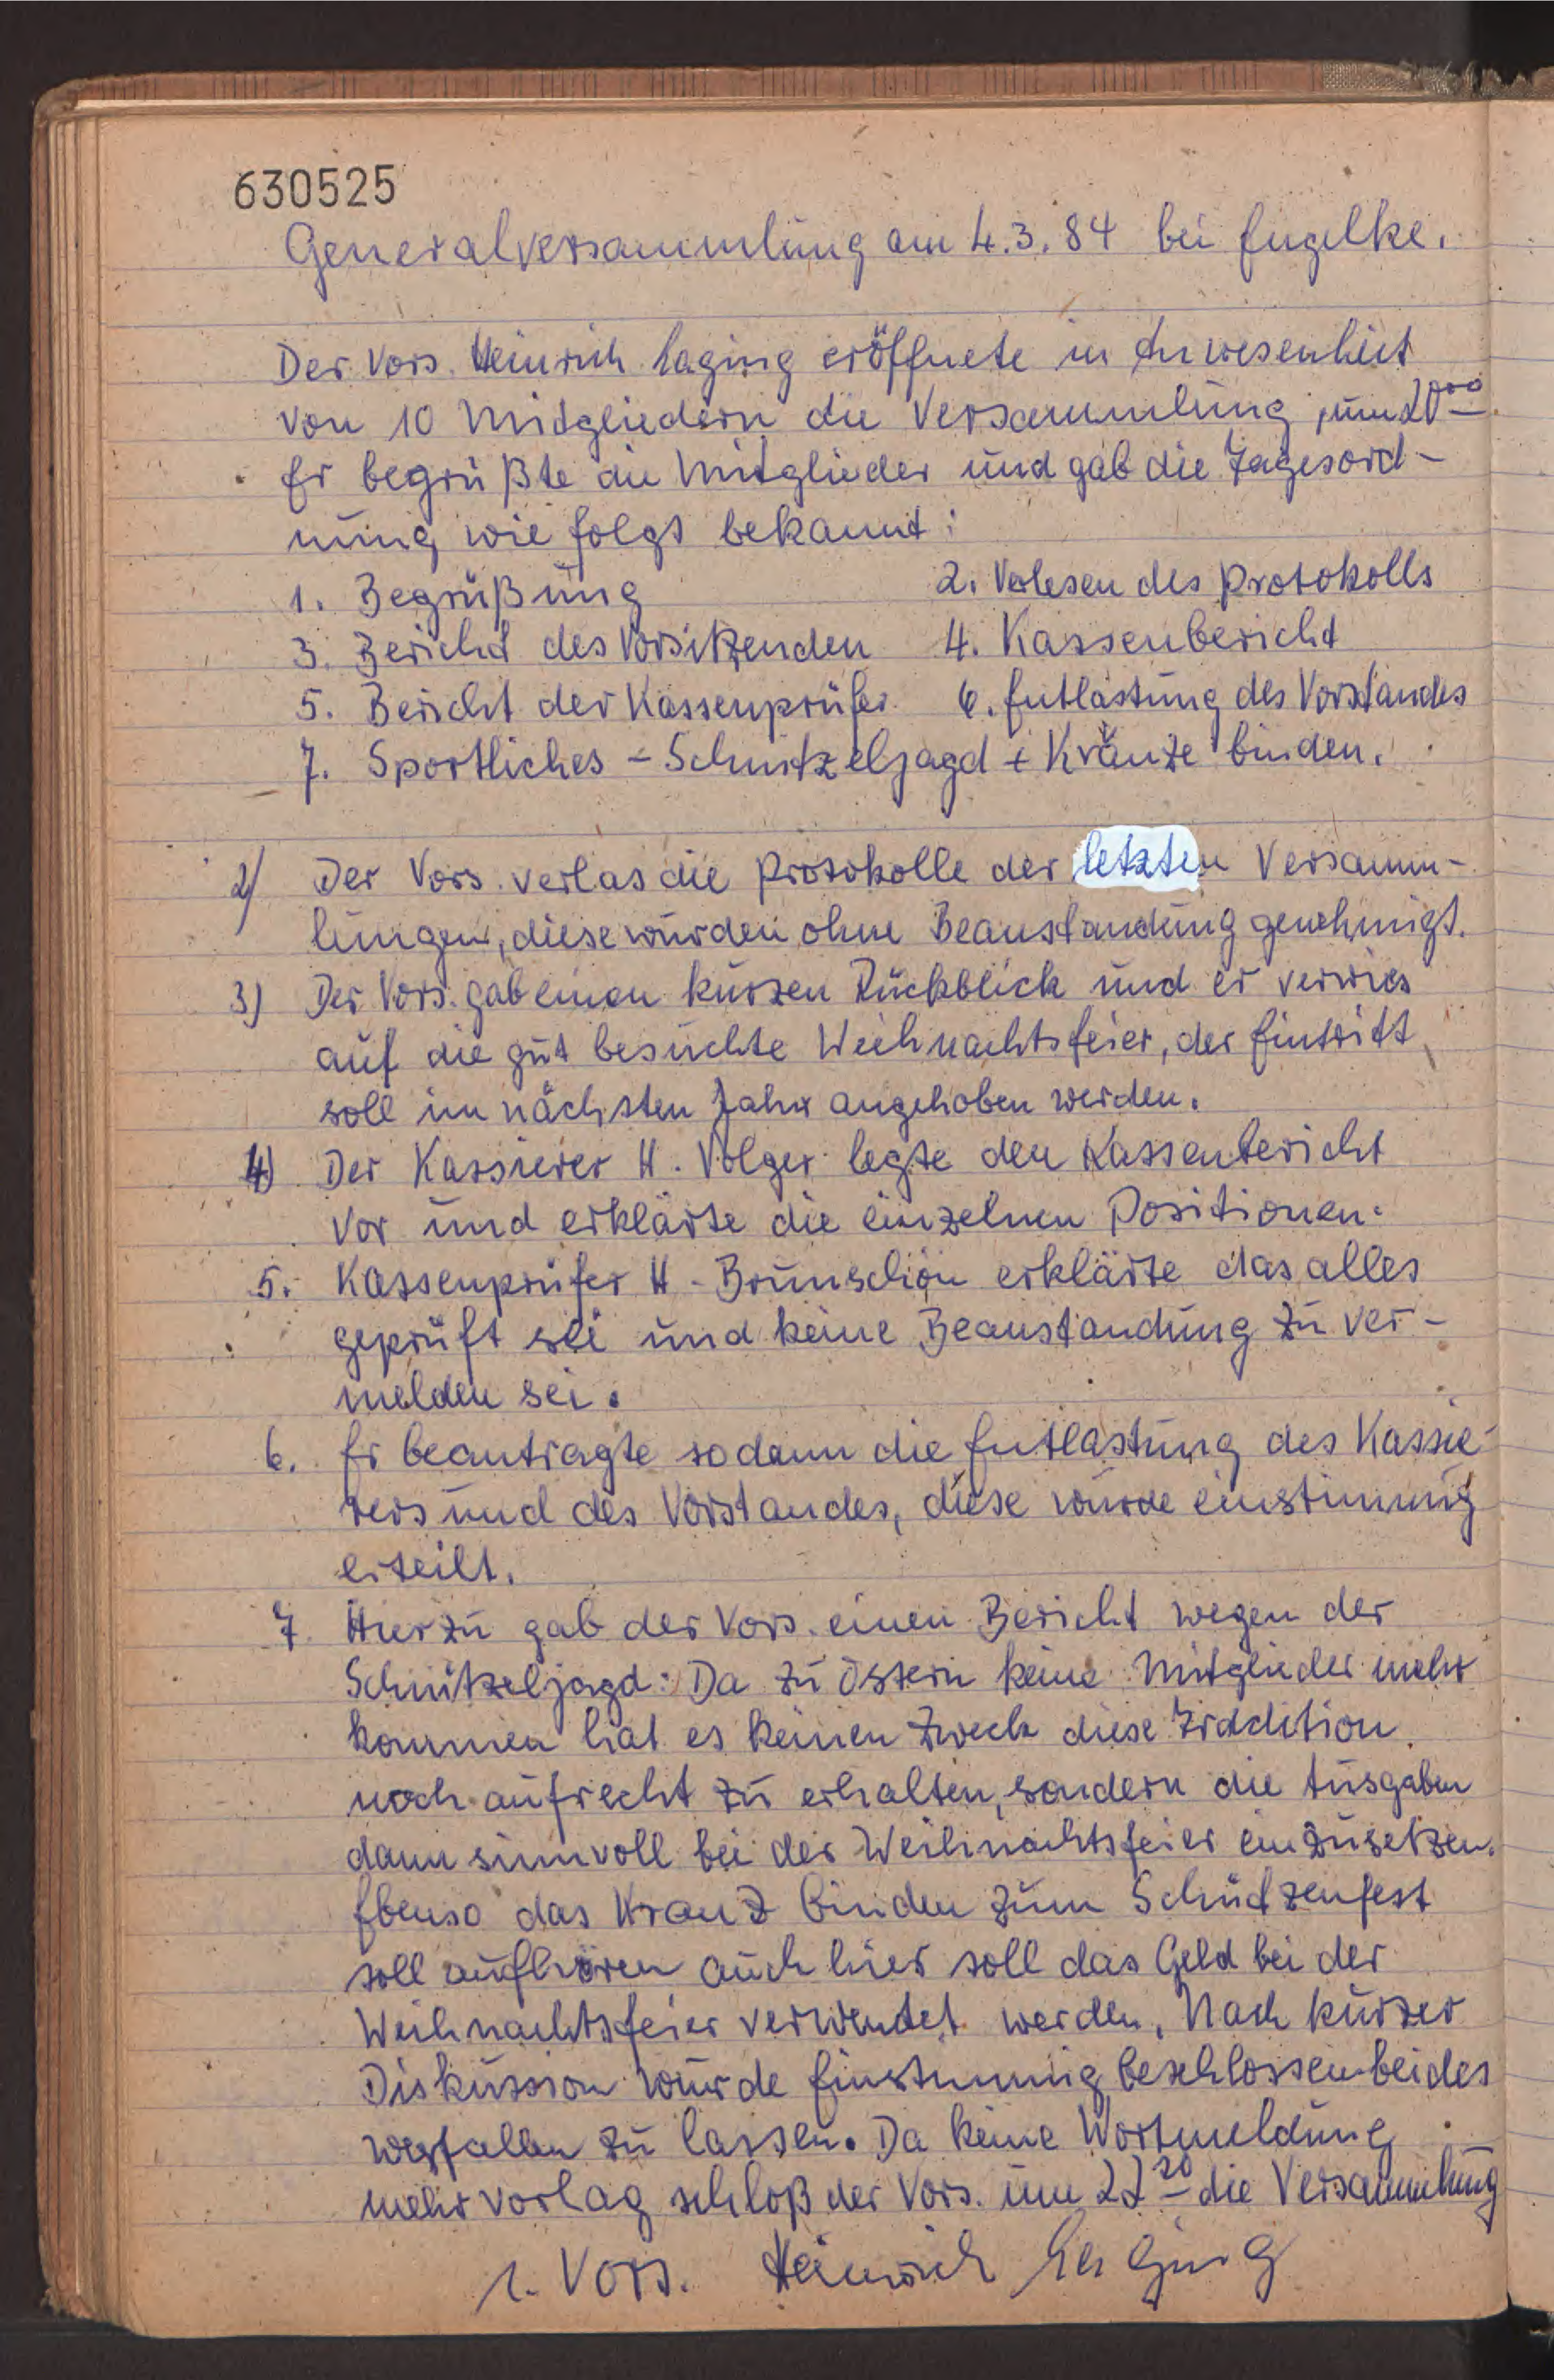 630525
Generalversammlung am 4.3.84 bei Engelke.
Der Vors. Heinrich Laging eröffnete in Anwesenheit
von 10 Mitgliedern die Versammlung um 20°°
Er begrüßte die Mitglieder und gab die Tagesord-
nung wie folgt bekannt:
1. Begrüßung 2. Volesen des Protokolls
3. Bericht des Vorsitzenden 4. Kassenbericht
5. Bericht der Kassenprüfer 6. Entlastung des Vorstandes
7. Sportliches - Schnitzeljagd + Kränze binden.
2) Der Vors. verlas die Protokolle der letzten Versamm-
lungen, diese wurden ohne Beanstandung genehmigt.
3) Der Vors. gab einen kurzen Rückblick und er verwies
auf die gut besuchte Weihnachtsfeier, der Eintritt
soll im nächsten Jahr angehoben werden.
4) Der Kassierer H. Volger legte den Kassenbericht
vor und erklärte die einzelnen Positionen.
5. Kassenprüfer H. Brunschön erklärte das alles
geprüft sei und keine Beanstandung zu ver-
melden sei.
6. Er beantragte sodann die Entlastung des Kassie-
rers und des Vorstandes, diese wurde einstimmig
erteilt.
7. Hierzu gab der Vors. einen Bericht wegen der
Schnitzeljagd: Da zu Ostern keine Mitglieder mehr
kommen hat es keinen Zweck diese Tradition
noch aufrecht zu erhalten, sondern die Ausgaben
dann sinnvoll bei der Weihnachtsfeier einzusetzen.
Ebenso das Kranz binden zum Schützenfest
soll aufhören auch hier soll das Geld bei der
Weihnachtsfeier verwendet werden. Nach kurzer
Diskussion wurde Einstimmig beschlossen beides
wegfallen zu lassen. Da keine Wortmeldung
mehr vorlag schloß der Vors. um 22²⁰ die Versammlung
1. Vors. Heinrich Laging